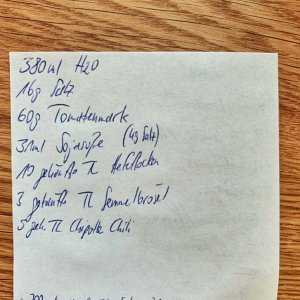 380ml H2O
16g Salz
60g Tomatenmark
31ml Sojasoße (4g Salz)
10 gehäufte TL Hefeflocken
3 gehäufte TL Semmelbrösel
5 geh. TL Chipotle Chili